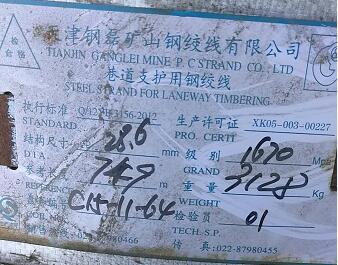 检
合格
天津钢磊矿山钢绞线有限公司
TIANJIN GANGLEI MINE P.C STRAND CO., LTD
巷道支护用钢绞线
STEEL STRAND FOR LANEWAY TIMBERING
执行标准 3156-2012 生产许可证 XK05-003-00227
STANDARD PROD. CERTI
结构尺寸 28.6 mm 级别 1670 Mpa
DIA. GRAND
参考长度 749 m 重量 3128 Kg
REFERENCE WEIGHT
C15-11-64 检验员 01
TECH. S.P
80466 传真:022-87980455